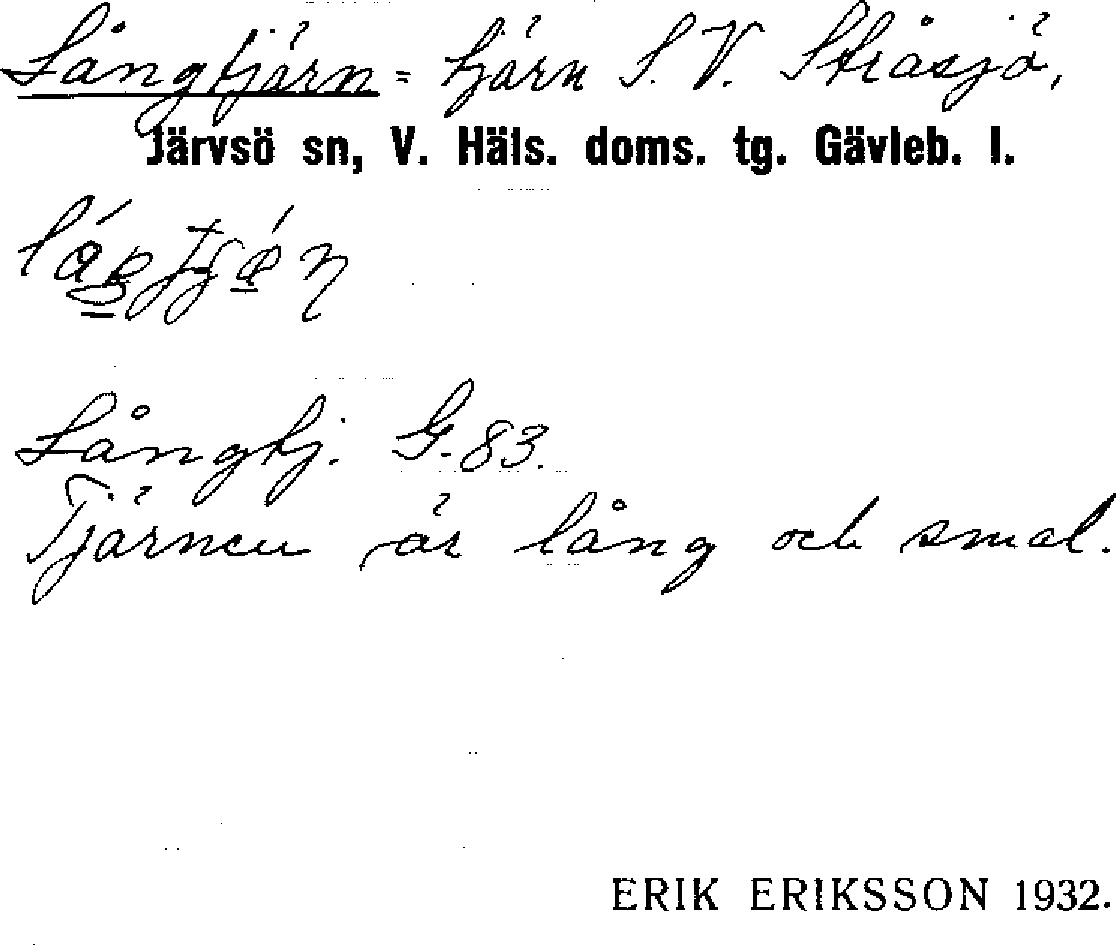 Långtjärn = tjärn S. V. Stråsjö,
Järvsö sn, V. Häls. doms. tg. Gävleb. l.
Långtj. G. 83.
Tjärnen är lång och smal.
ERIK ERIKSSON 1932.